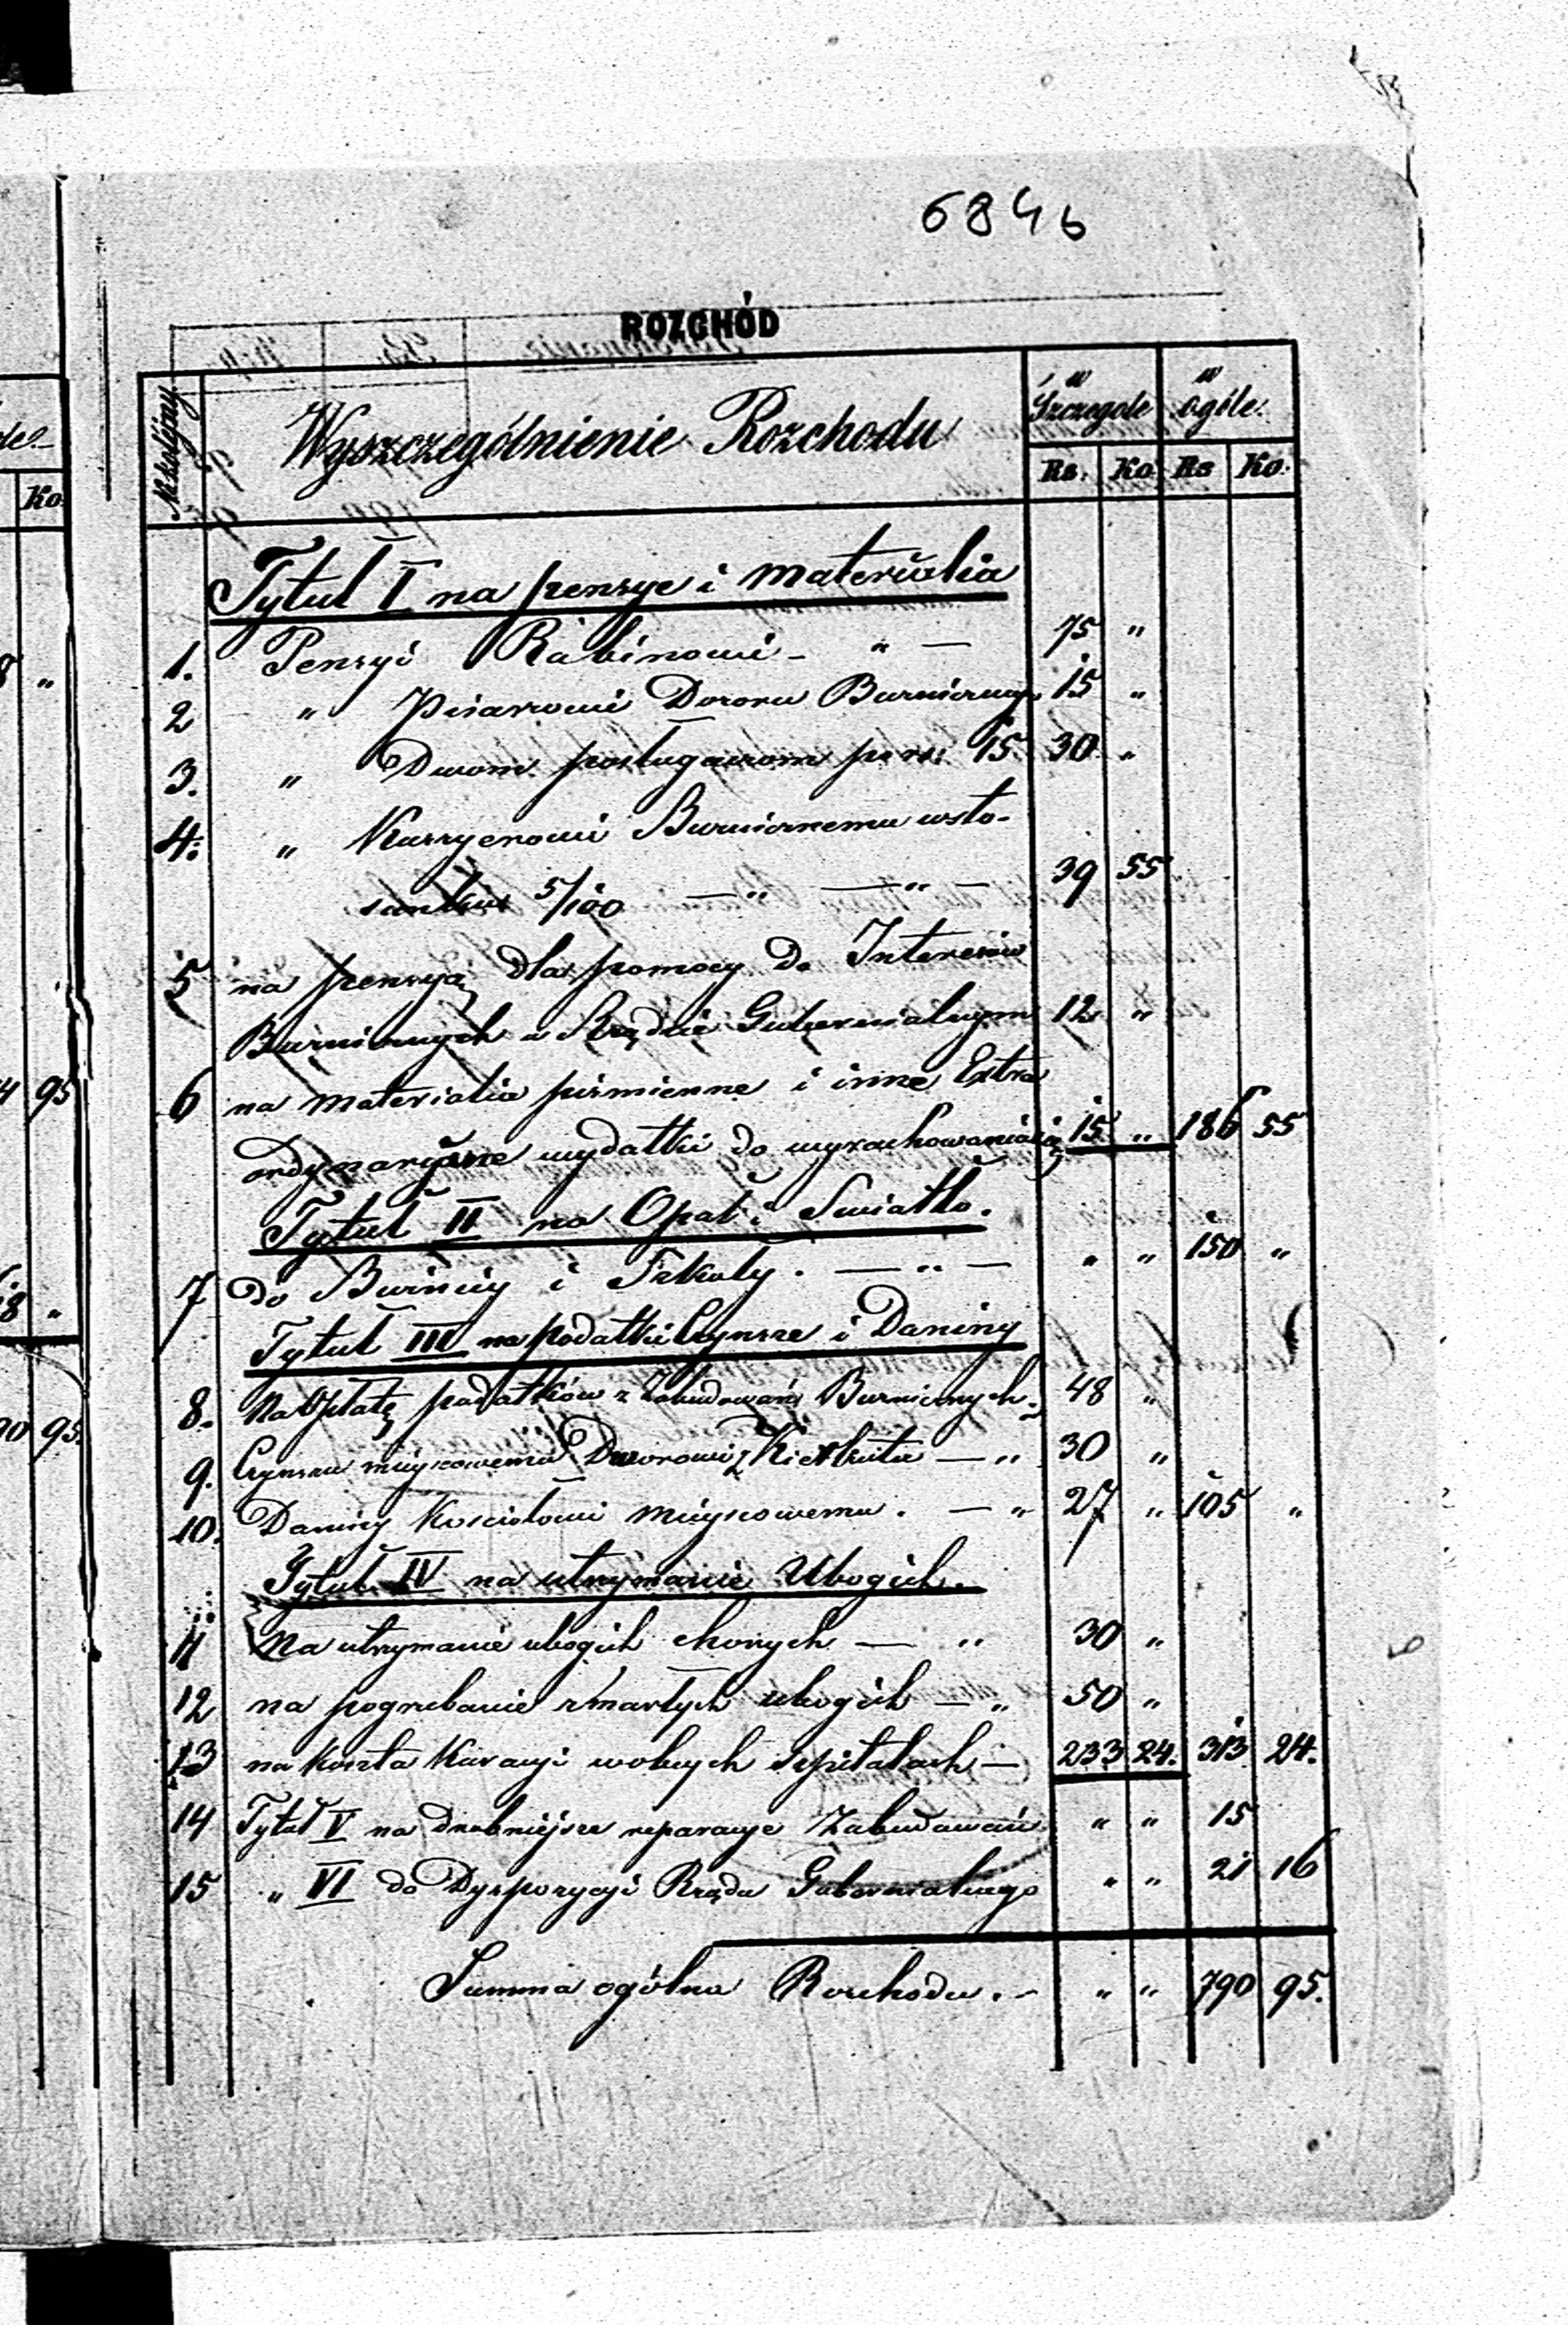 6846
ROZCHÓD
N kolejny
Wyszczególnienie Rozchodu
w Szczegole
w ogóle.
Rs. Ko. Rs Ko.
Tytuł I na pensye i materialia
1. Pensyi Rabinowi - " — 75 "
2 " Pisarzowi Dozoru Bużniczneg. 15 "
3. " Dwom posługaczom po rs. 15. 30 "
4. " Kassyerowi Bużnicznemu wsto-
sunku 5/100 — " — " — 39 55
5 na pensyą dla pomocy do Interesów
Bużnicznych w Rządzie Gubernialnym 12 "
6 na materialia piśmienne i inne Extra
ordynaryjne wydatki do wyrachowania 15 " 186 55
Tytuł II na Opał i Swiatło.
7 do Bużnicy i Szkoły. — " — " " 150 "
Tytuł III na podatki Czynsze i Daniny
8. Na Opłatę podatków z Zabudowań Bużnicznych. 48 "
9. Czynszu miejscowemu Dworowi z Kierkutu — " 30 "
10. Daniny Kosciołowi miejscowemu. — " 27 " 105 "
Tytuł IV na utrzymanie Ubogich.
11 Na utrzymanie ubogich chorych — " 30 "
12 na pogrzebanie zmarłych ubogich — " 50 "
13 na koszta Kuracyi w obcych szpitalach — 233 24. 313 24.
14 Tytuł V na drobniejsze reparacye Zabudowań " " 15
15 " VI do Dyspozycyi Rządu Gubernialnego " " 21 16
Summa ogólna Rozchodu. - " " 790 95.